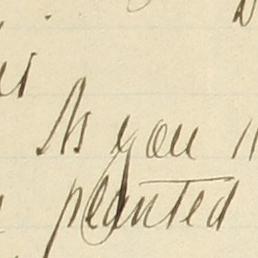 As you
planted